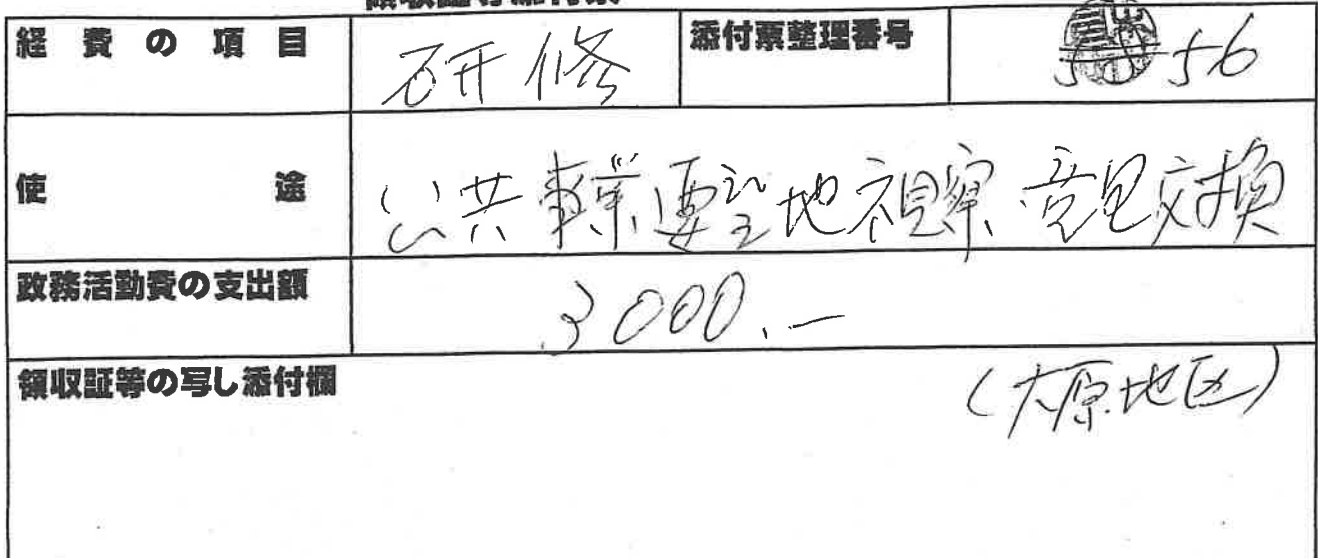 領収証等添付票
経費の項目 研修 添付票整理番号 56
使途 公共事業要望地視察、意見交換
政務活動費の支出額 3000.-
領収証等の写し添付欄 (大原地区)